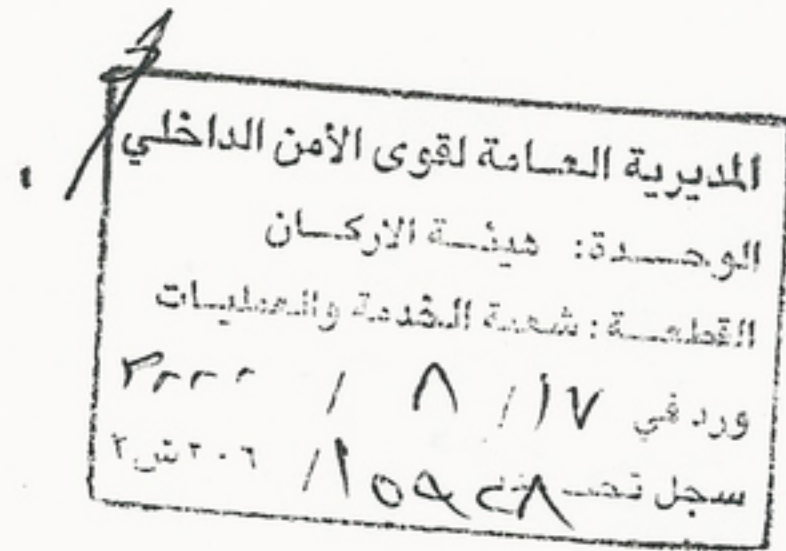 المديرية العامة لقوى الأمن الداخلي
الوحدة: هيئة الاركان
القطعة: شعبة الخدمة والعمليات
ورد في ١٧ / ٨ /
سجل تحت ١٥٩٢٨ / ٢٠٦ ش٢